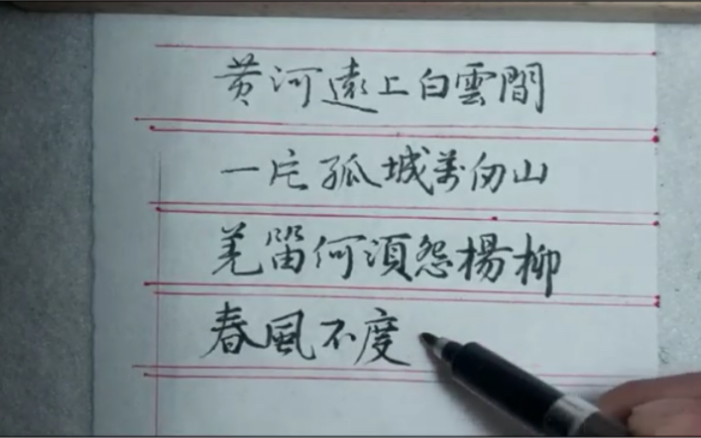 黄河遠上白雲間
一片孤城萬仞山
羌笛何須怨楊柳
春風不度